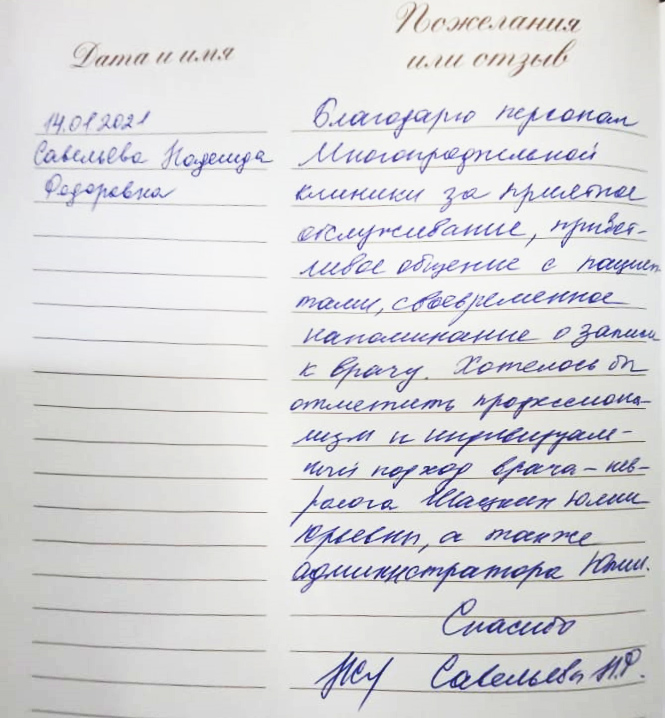 Дата и имя
Пожелания
или отзыв
14.01.2021
Савельева Надежда
Федоровна
Благодарю персонал
Многопрофильной
клиники за приятное
обслуживание, привет-
ливое общение с пациен
тами, своевременное
напоминание о записи
к врачу. Хотелось бы
отметить профессиона-
лизм и индивидуаль-
ный подход врача-нев-
ролога Шацких Юлии
Юрьевны, а также
администратора Юлии.
Спасибо
Савельева Н.Ф.